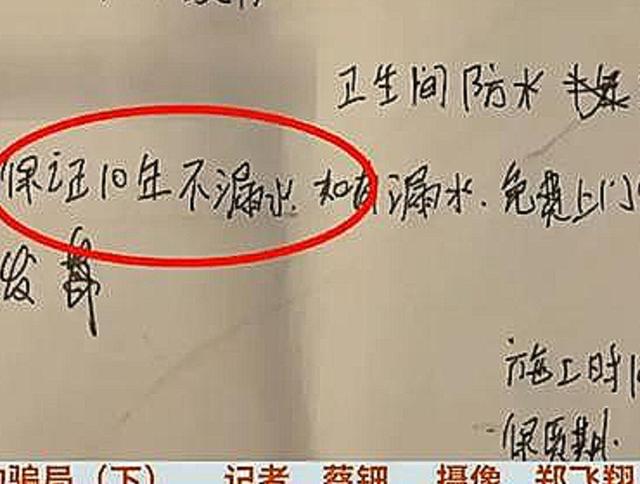 卫生间防水
保证10年不漏水.如有漏水.免费上门
发
施工时间
保质期.
骗局（下） 记者 蔡钿 摄像 郑飞翔